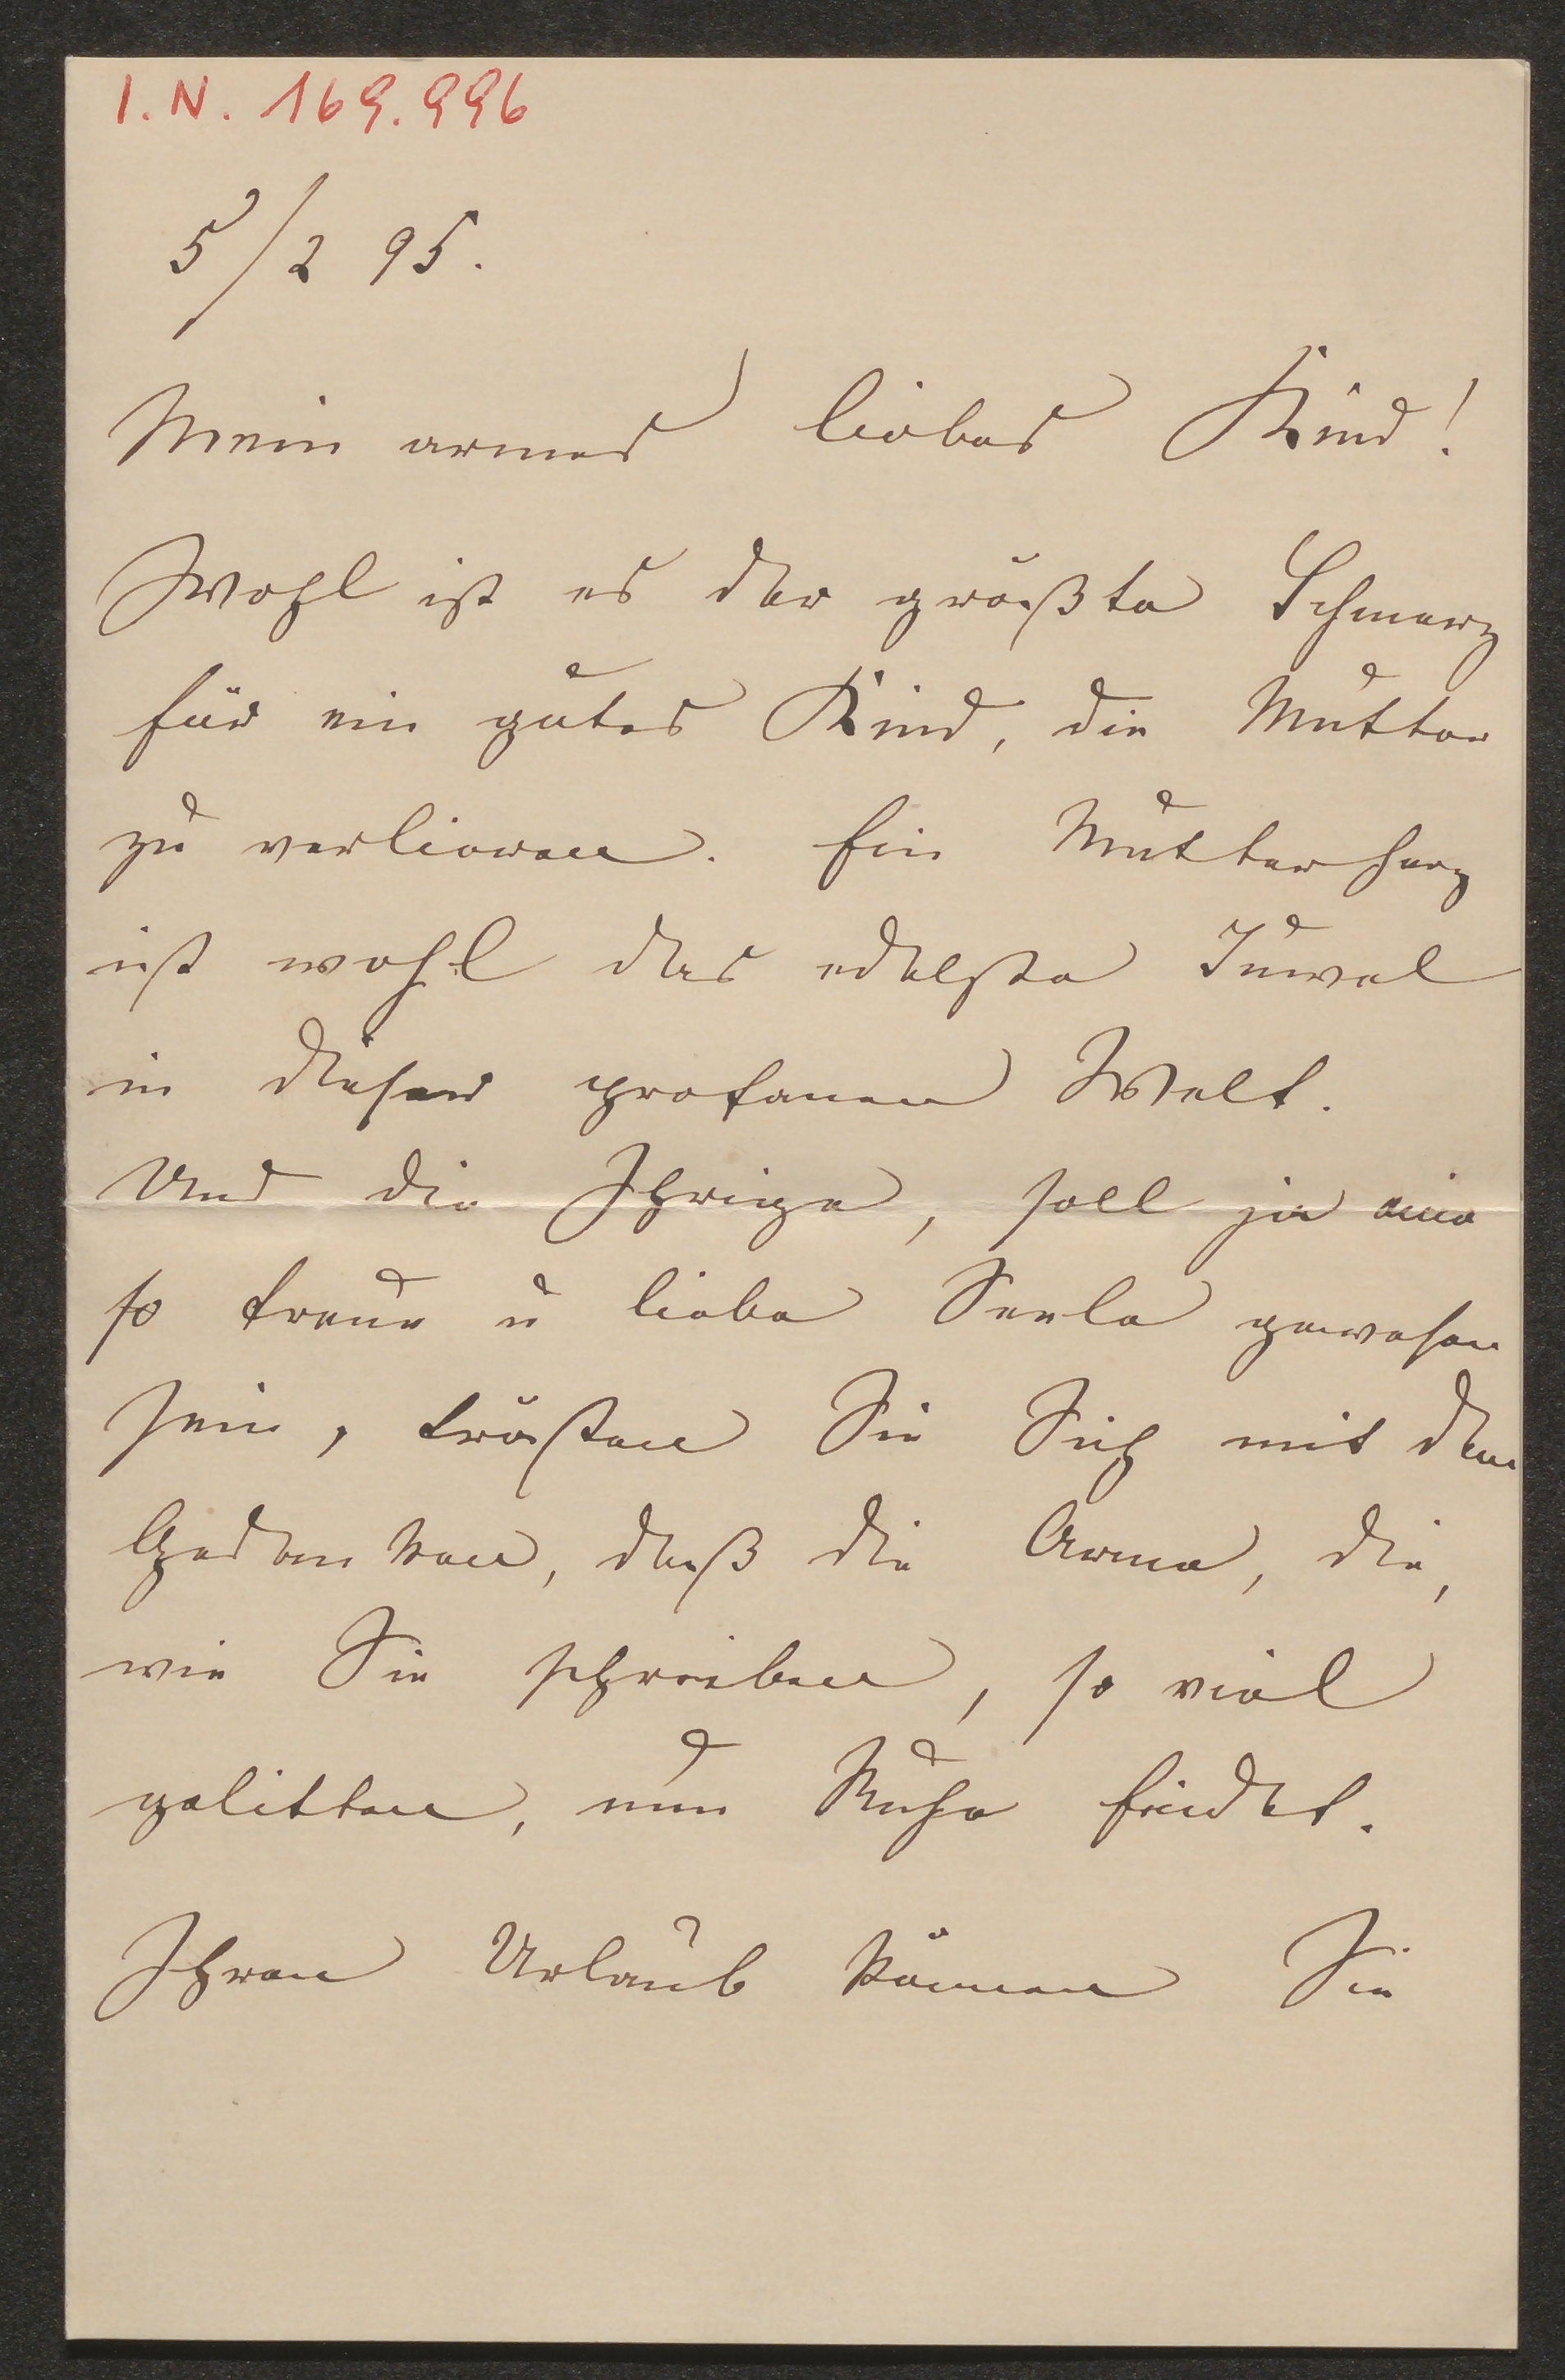 I.N. 169.996
5/2 95.
Mein armes liebes Kind!
Wohl ist es der größte Schmerz
für ein gutes Kind, die Mutter
zu verlieren. Ein Mutterherz
ist wohl das edelste Juwel
in dieser profanen Welt.
Und die Ihrige, soll ja eine
so treue u liebe Seele gewesen
sein, trösten Sie Sich mit dem
Gedanken, daß die Arme, die,
wie Sie schreiben, so viel
gelitten, nun Ruhe findet.
Ihren Urlaub können Sie